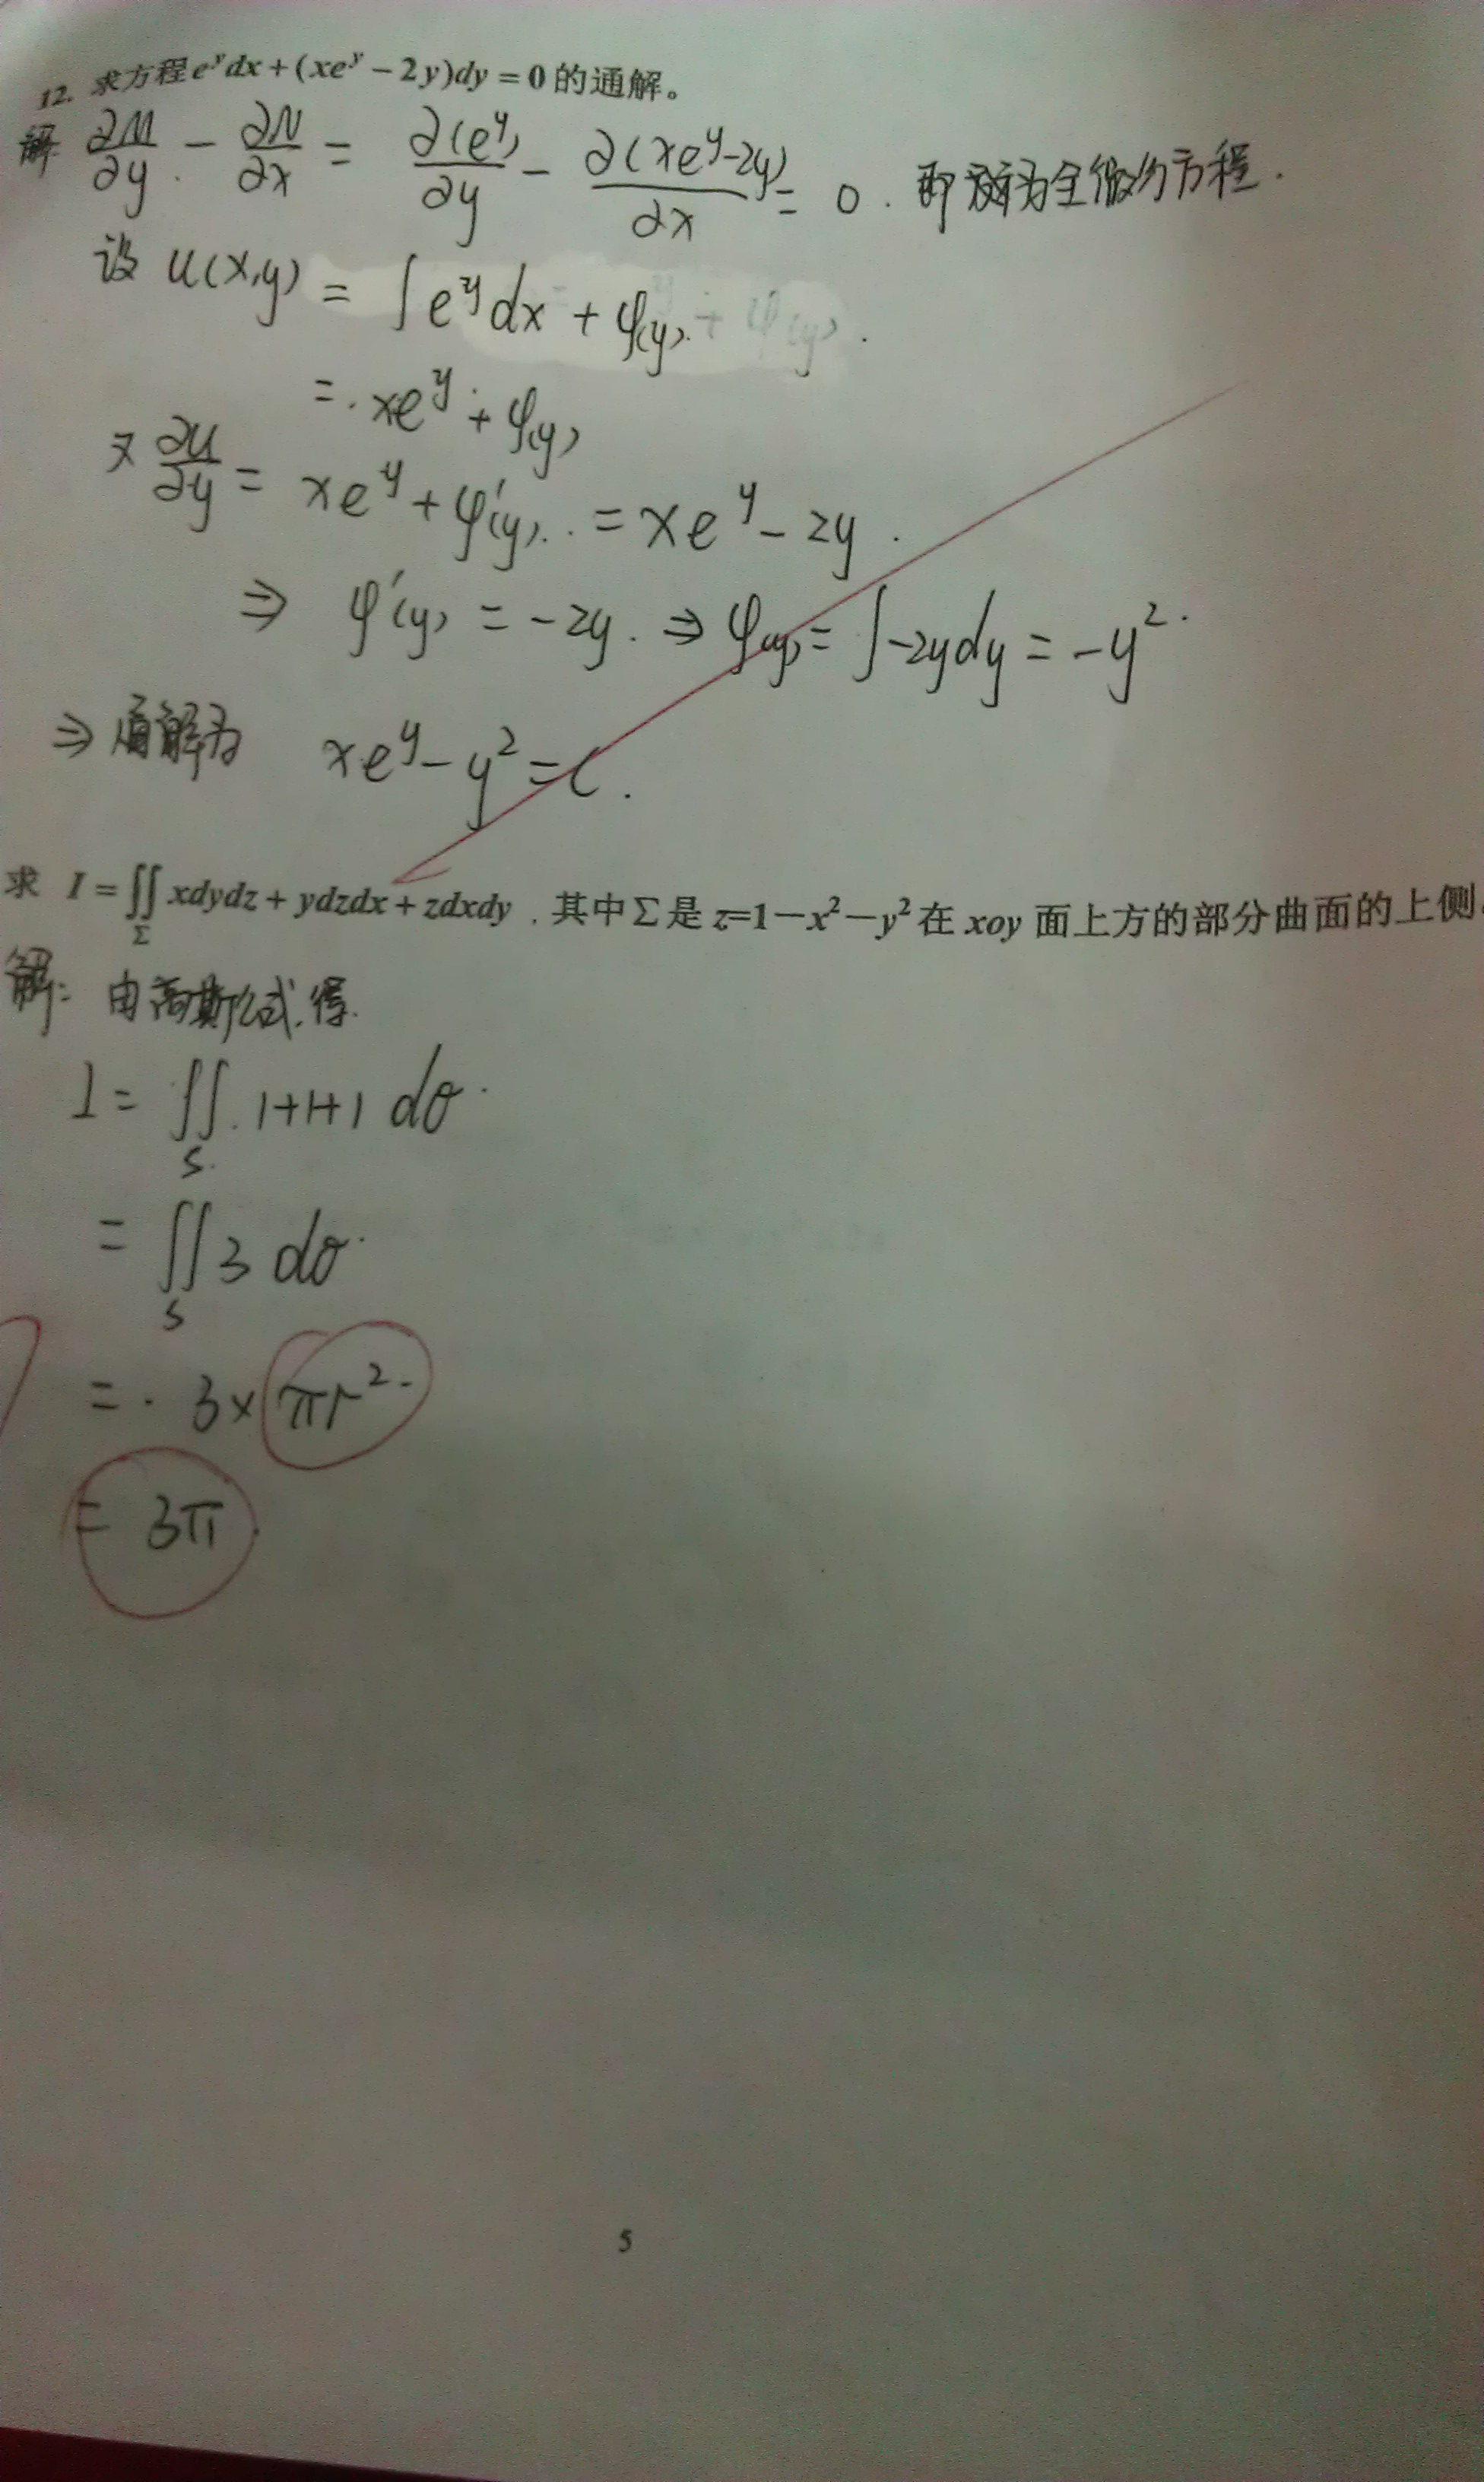 12. 求方程 e^y dx + (xe^y − 2y)dy = 0 的通解。
解: ∂M/∂y − ∂N/∂x = ∂(e^y)/∂y − ∂(xe^y−2y)/∂x = 0. 即 为全微分方程.
设 u(x,y) = ∫e^y dx + φ(y).
= xe^y + φ(y)
又 ∂u/∂y = xe^y + φ'(y) = xe^y − 2y.
⇒ φ'(y) = −2y. ⇒ φ(y) = ∫−2ydy = −y².
⇒ 通解为 xe^y − y² = C.
求 I = ∬_Σ xdydz + ydzdx + zdxdy . 其中Σ是 z=1−x²−y² 在 xoy 面上方的部分曲面的上侧.
解: 由高斯公式,得.
I = ∬_S 1+1+1 dσ.
= ∬_S 3 dσ.
= 3×πr².
= 3π.
5